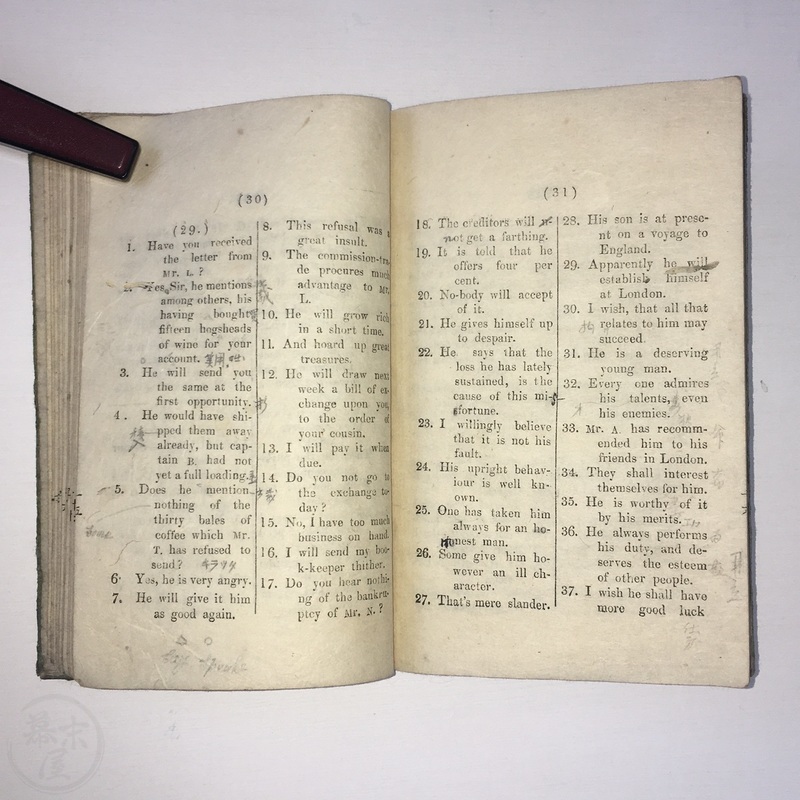 (30)
(29.)
1. Have you received
the letter from
Mr. L. ?
Yes, Sir, he mentions
among others, his
having bought
fifteen hogsheads
of wine for your
account.
3. He will send you
the same at the
first opportunity.
4. He would have shi-
pped them away
already, but cap-
tain B. had not
yet a full loading.
5. Does he mention
nothing of the
thirty bales of
coffee which Mr.
T. has refused to
send ?
6. Yes, he is very angry.
7. He will give it him
as good again.
8. This refusal was a
great insult.
9. The commission-tra-
de procures much
advantage to Mr.
L.
10. He will grow rich
in a short time.
11. And hoard up great
treasures.
12. He will draw next
week a bill of ex-
change upon you,
to the order of
your cousin.
13. I will pay it when
due.
14. Do you not go to
the exchange to-
day ?
15. No, I have too much
business on hand.
16. I will send my boo-
k-keeper thither.
17. Do you hear nothi-
ng of the bankru-
ptcy of Mr. N. ?
(31)
18. The creditors will
not get a farthing.
19. It is told that he
offers four per
cent.
20. No-body will accept
of it.
21. He gives himself up
to despair.
22. He says that the
loss he has lately
sustained, is the
cause of this mi-
sfortune.
23. I willingly believe
that it is not his
fault.
24. His upright behav-
iour is well kn-
own.
25. One has taken him
always for an ho-
nest man.
26. Some give him ho-
wever an ill ch-
aracter.
27. That's mere slander.
28. His son is at prese-
nt on a voyage to
England.
29. Apparently he will
establish himself
at London.
30. I wish, that all that
relates to him may
succeed.
31. He is a deserving
young man.
32. Every one admires
his talents, even
his enemies.
33. Mr. A. has recomm-
ended him to his
friends in London.
34. They shall interest
themselves for him.
35. He is worthy of it
by his merits.
36. He always performs
his duty, and de-
serves the esteem
of other people.
37. I wish he shall have
more good luck